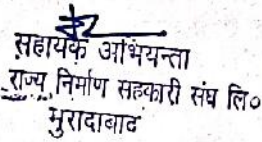 सहायक अभियन्ता
राज्य निर्माण सहकारी संघ लि०
मुरादाबाद